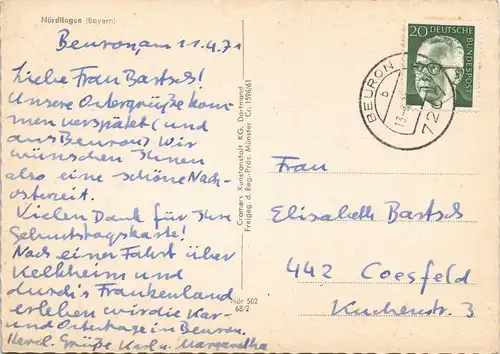 Nördlingen (Bayern)
Beuron, am 11.4.71
Liebe Frau Bartsch!
Unsere Ostergrüße kom-
men verspätet (und
aus Beuron) Wir
wünschen Ihnen
also eine schöne Nach-
osterzeit.
Vielen Dank für Ihre
Geburtstagskarte!
Nach einer Fahrt über
Kelkheim und
durch's Frankenland
erleben wir die Kar-
und Ostertage in Beuron.
Herzl. Grüße Karl u. Margaretha
Cramers Kunstanstalt KG, Dortmund
Freigeg. d. Reg.-Präs. Münster Cr. 1596/61
Nör 502
68/2
20 DEUTSCHE
BUNDESPOST
BEURON
b
720
Frau
Elisabeth Bartsch
442 Coesfeld
Kuchenstr. 3